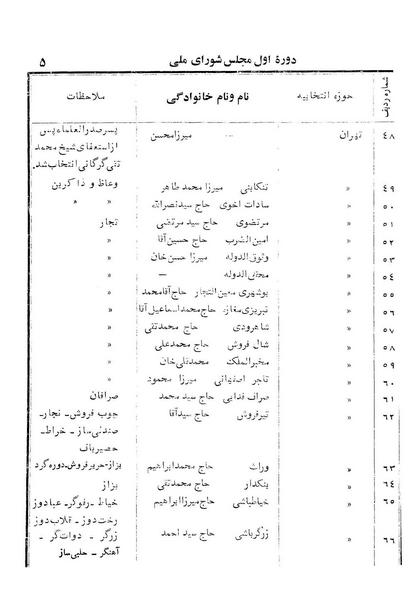 دورهٔ اول مجلس شورای ملی ۵
شماره ردیف حوزه انتخابیه نام ونام خانوادگی ملاحظات
۴۸ تهران میرزامحسن پسرصدرالعلماء پس
ازاستعفای شیخ محمد
تقی گرگانی انتخاب شد.
۴۹ » تنکابنی میرزا محمد طاهر وعاظ و ذاکرین
۵۰ » سادات اخوی حاج سیدنصرالله » »
۵۱ » مرتضوی حاج سید مرتضی تجار
۵۲ » امین‌الضرب حاج حسین آقا »
۵۳ » وثوق‌الدوله میرزا حسن خان »
۵۴ » الدوله — »
۵۵ » بوشهری معین‌التجار حاج آقامحمد »
۵۶ » تبریزی مغازه حاج محمداسماعیل آقا »
۵۷ » شاهرودی حاج محمدتقی »
۵۸ » شال فروش حاج محمدعلی »
۵۹ » مخبرالملک محمدقلی خان »
۶۰ » تاجر اصفهانی میرزا محمود »
۶۱ » صراف فدایی حاج سید محمد صرافان
۶۲ » تیرفروش حاج سیدآقا چوب فروش - نجار -
صندلی‌ساز - خراط -
حصیرباف
۶۳ » وراث حاج محمدابراهیم بزاز-حریرفروش-دوره گرد
۶۴ » بنکدار حاج محمدتقی بزاز
۶۵ » خیاطباشی حاج میرزاابراهیم خیاط - رفوگر- عبادوز
رخت‌دوز - قلابدوز
۶۶ » زرگرباشی حاج سید احمد زرگر - دوات‌گر -
آهنگر - حلبی‌ساز